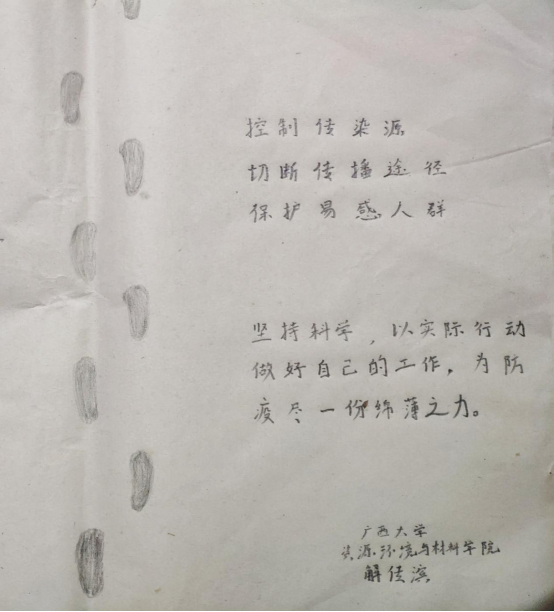 控制传染源
切断传播途径
保护易感人群
坚持科学，以实际行动
做好自己的工作，为防
疫尽一份绵薄之力。
广西大学
资源环境与材料学院
解传滨